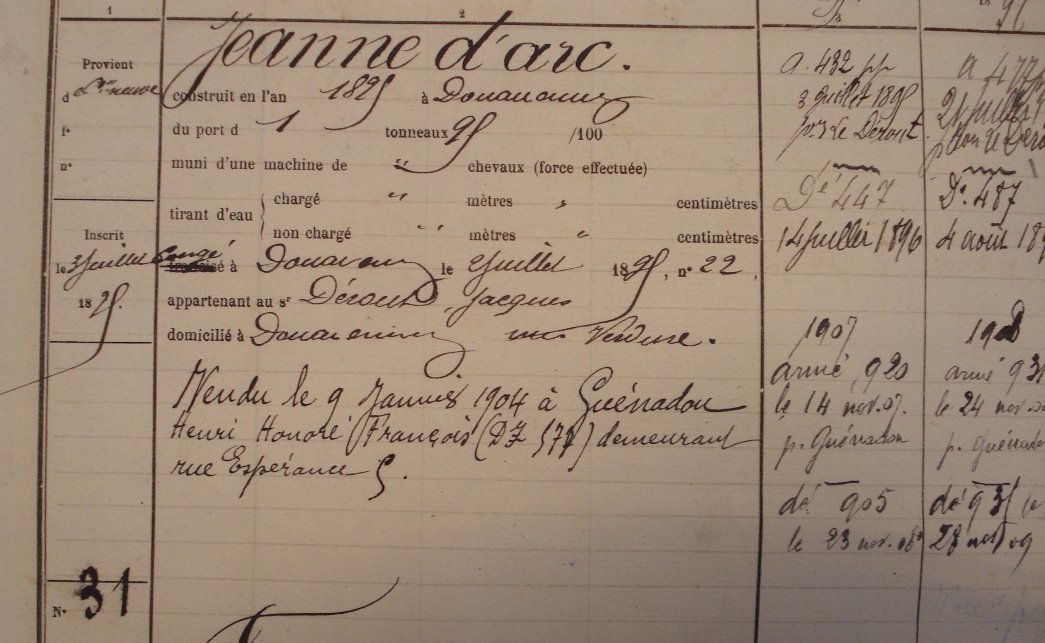 1
2
3
Jeanne d'arc.
Provient
d
construit en l'an 1895 à Douarnenez
f°
du port d 1 tonneaux 95 /100
n°
muni d'une machine de " chevaux (force effectuée)
tirant d'eau
chargé " mètres " centimètres
non chargé " mètres " centimètres
Inscrit
le 3 juillet
1895.
Congé à Douarnenez le 2 juillet 1895, n° 22,
appartenant au sr Dérout Jacques
domicilié à Douarnenez
Vendu le 9 Janvier 1904 à Guénadou
Henri Honoré François (DZ 572) demeurant
rue Espérance 5.
N° 31
a. 432 pp
3 juillet 1895
pr le Dérout
Dé 447
14 juillet 1896
1907
armé 920
le 14 nov. 07.
p. Guénadou
dé 905
le 23 nov. 08
a 477
21 juillet
D° 487
4 août 189
1908
armé 931
le 24 nov.
p. Guénadou
dé 935 le
28 nov 09